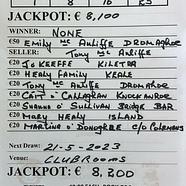 8 16 25
JACKPOT: € 8,100
WINNER: NONE
€50 EMILY MC AULIFFE DROMAGROE
SELLER: TONY MC AULIFFE
€20 JO KEEFFE KILETRA
€20 HEALY FAMILY KEALE
€20 TONY MC AULIFFE DROMAROE
€20 CAIT O'CALLAGHAN KNOCKNAGREE
€20 SHAWNA O'SULLIVAN BRIDGE BAR
€20 MARY HEALY ISLAND
€20 MARTINA O'DONOGHOE C/O COLEMANS
Next Draw: 21-5-2023
Venue: CLUBROOMS
JACKPOT: € 8,200